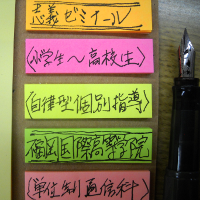 志義ゼミナール
〈小学生〜高校生〉
〈自律型個別指導〉
福岡国際高等学院
〈単位制通信科〉